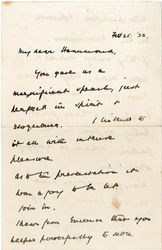 Feb 25. '36.
My dear Hammond,
You gave us a
magnificent speech, just
perfect in spirit &
eloquence. I listened to
it all with intense
pleasure
as to the presentation it
was a joy to be let
join in.
I know from that you
helped powerfully to